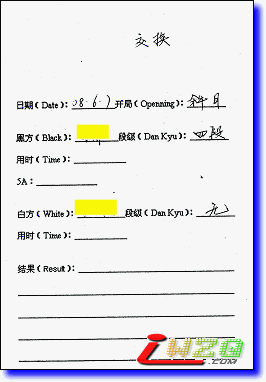 交换
日期(Date): 08.6.7 开局(Openning):
黑方(Black): 段级(Dan Kyu): 四段
用时(Time):
5A:
白方(White): 段级(Dan Kyu): 无
用时(Time):
结果(Result):
iWZQ
.COM